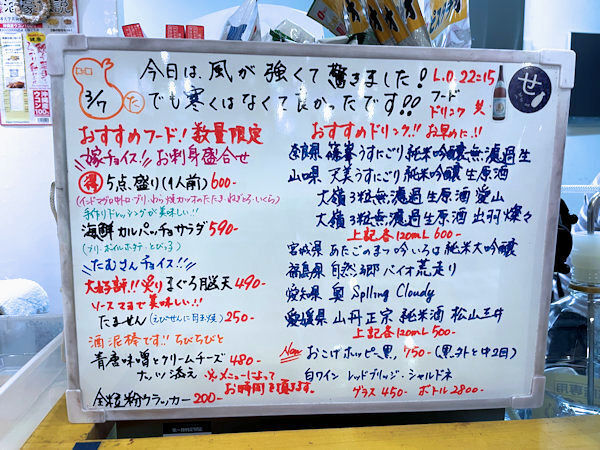 3/7
今日は、風が強くて驚きました!
でも寒くはなくて良かったです!!
L.O.22:15
フード
ドリンク
せ
おすすめフード!!数量限定
嫁チョイス!!お刺身盛合せ
得 5点盛り(1人前)600-
手作りドレッシングが美味しい!!
海鮮カルパッチョサラダ590-
(ブリ・ボイルホタテ・とびっ子)
たむさんチョイス!!
大好評!!炙りまぐろ月見天 490-
ソースマヨで美味しい!!
たません(えびせんに目玉焼)250-
酒泥棒です!!ちびちびと
青唐味噌とクリームチーズ 480-
ナッツ添え
※メニューによって
お時間を頂きます。
全粒粉クラッカー 200-
おすすめドリンク!!お早めに!!
奈良県 篠峯うすにごり純米吟醸無濾過生
山口県 天美うすにごり純米吟醸生原酒
大嶺3粒無濾過生原酒 愛山
大嶺3粒無濾過生原酒 出羽燦々
上記各120ml 600-
宮城県 あたごのまつ 吟いろは 純米大吟醸
福島県 自然郷 バイオ荒走り
愛知県 奥 Splling Cloudy
愛媛県 山丹正宗 純米酒 松山三井
上記各120ml 500-
New おこげホッピー黒, 750-(黒外と中2回)
白ワイン レッドブリッジ・シャルドネ
グラス 450- ボトル 2800-